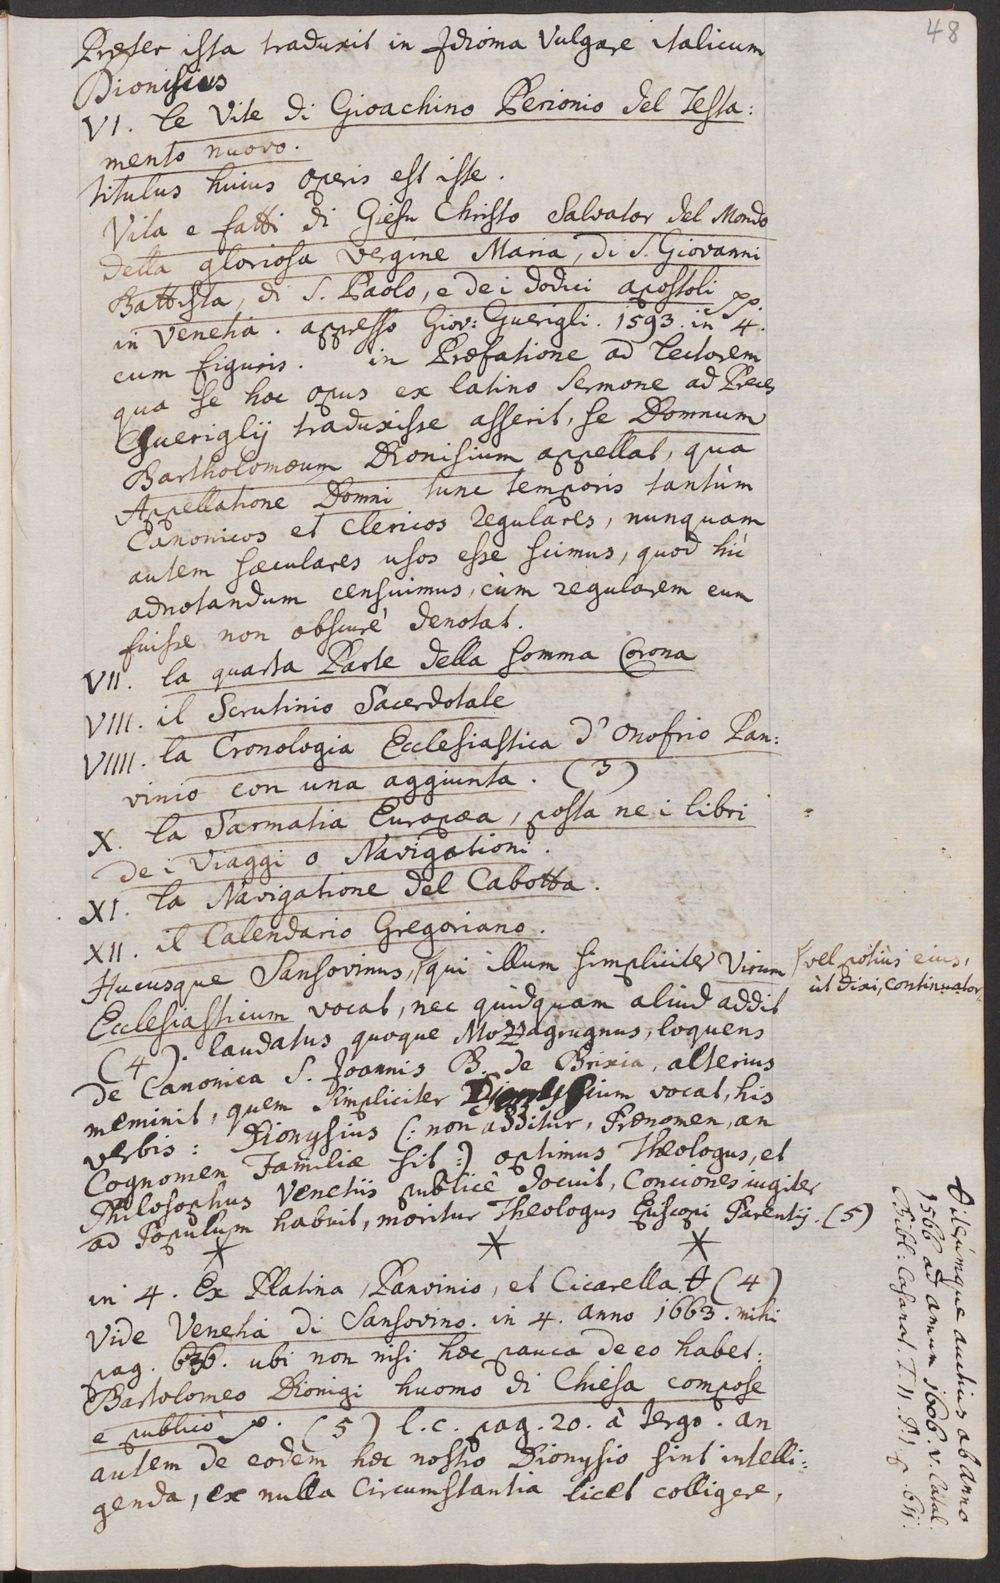 48
Præter ista traduxit in Idioma Vulgare italicum
Dionisius
VI. le Vite di Gioachino Perionio del Testa:
mento nuovo.
titulus huius operis est iste.
Vita e fatti di Giesu Christo Salvator del Mondo
della gloriosa Vergine Maria, di S. Giovanni
Battista, di S. Paolo, e dei dodici apostoli pp.
in Venetia. appresso Giov: Guerigli. 1593. in 4.
cum figuris. in Præfatione ad lectorem
qua se hoc opus ex latino sermone ad Preces
Gueriglij traduxisse asserit, se Domnum
Bartholomæum Dionisium appellat, qua
Appellatione Domni tunc temporis tantùm
Canonicos et Clericos Regulares, nunquam
autem sæculares usos esse scimus, quod hìc
adnotandum censuimus, cùm regularem eum
fuisse non obscurè denotat.
VII. la quarta Parte della Somma Corona
VIII. il Scrutinio Sacerdotale
VIIII. la Cronologia Ecclesiastica d'Onofrio Pan:
vinio con una aggiunta. (3)
X. la Sarmatia Europæa, posta ne i libri
de i Viaggi o Navigationi.
XI. la Navigatione del Cabotta.
XII. il Calendario Gregoriano.
Hucusque Sansovinus, qui illum simpliciter Virum
vel potiùs eius,
ùt dixi, continuator,
Ecclesiasticum vocat, nec quidquam aliud addit
(4). laudatus quoque Mozzagrugnus, loquens
de Canonica S. Joannis B. de Brixia, alterius
meminit, quem simpliciter Dionysium vocat, his
verbis: Dionysius (: non additur, Prænomen, an
Cognomen Familiæ sit:) optimus Theologus, et
Philosophus Venetiis publicè docuit, Conciones iugiter
ad Populum habuit, moritur Theologus Episcopi Parentij. (5)
* * *
in 4. Ex Platina, Panvinio, et Cicarella (4)
Vide Venetia di Sansovino. in 4. anno 1663. mihi
pag. 636. ubi non nisi hæc pauca de eo habet:
Bartolomeo Dionigi huomo di Chiesa compose
e publicò p. (5) l. c. pag. 20. à tergo. an
autem de eodem hoc nostro Dionysio sint intelli:
genda, ex nulla Circumstantia licet colligere,
Vitèrumque auctius ab Anno
1566 ad annum 1606. v. Catal.
Bibl: Casanat. T. II. P. I f. 611.